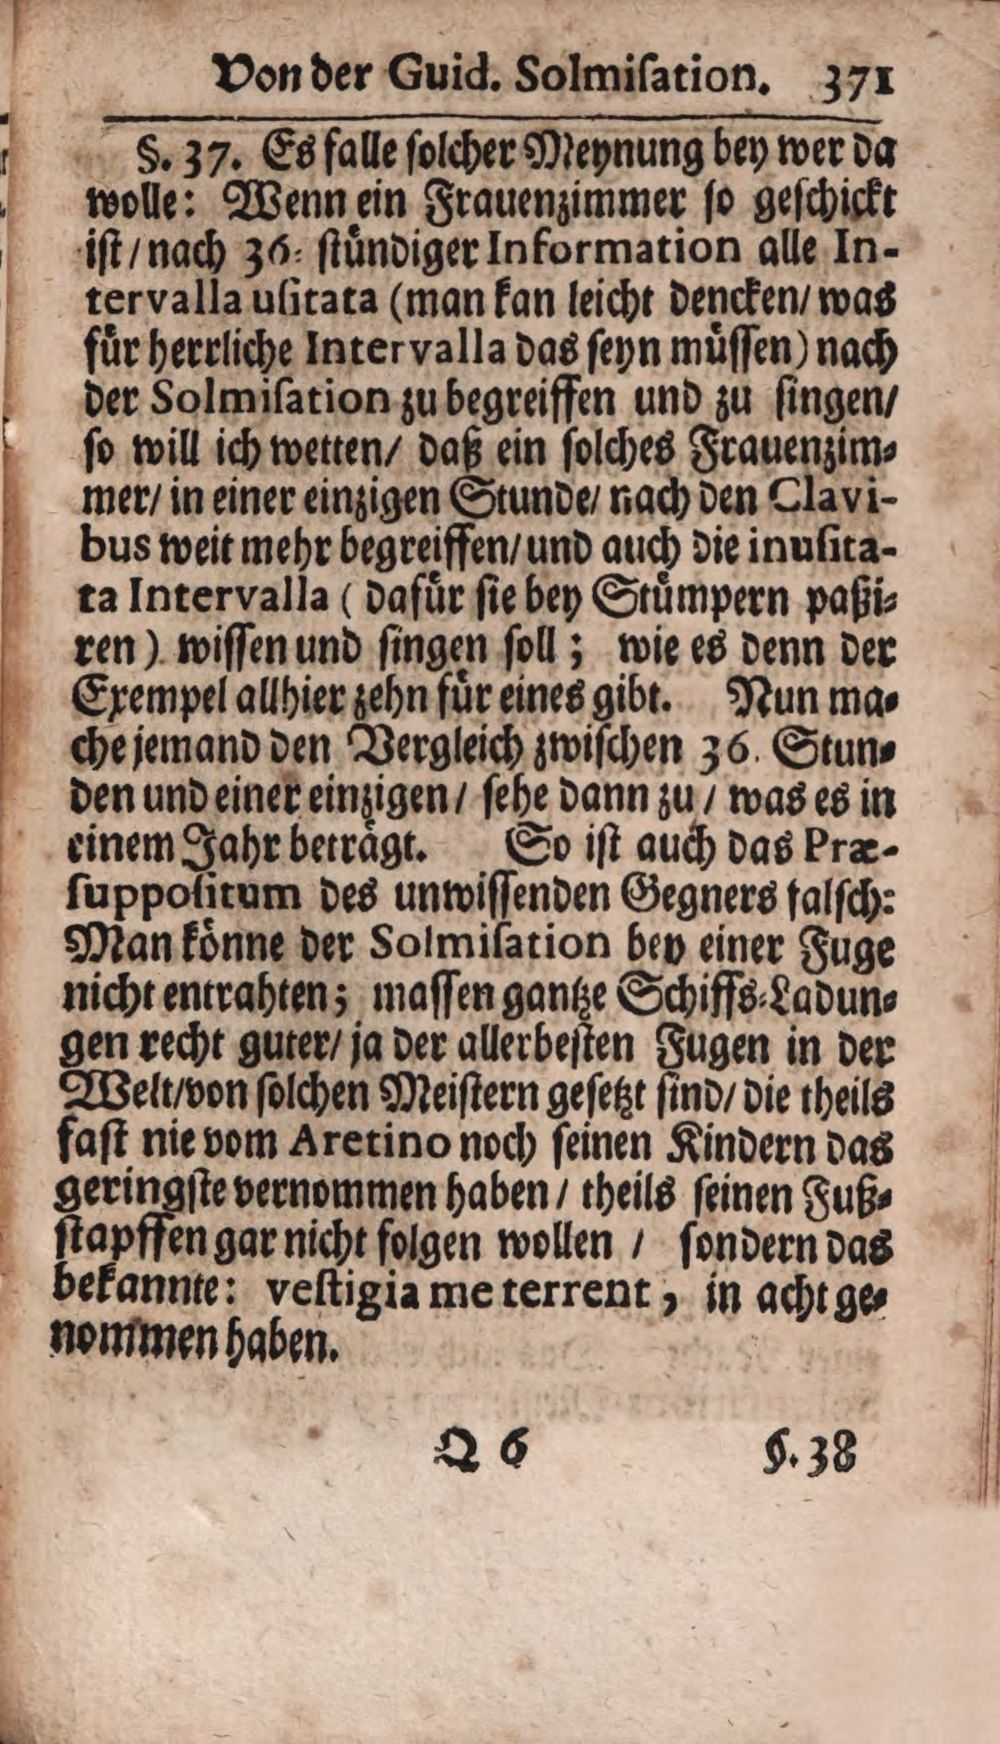 Von der Guid. Solmiſation. 371
§. 37. Es falle ſolcher Meynung bey wer da
wolle: Wenn ein Frauenzimmer ſo geſchickt
iſt / nach 36⸗ ſtuͤndiger Information alle In-
tervalla uſitata (man kan leicht dencken / was
fuͤr herrliche Intervalla das ſeyn muͤſſen) nach
der Solmiſation zu begreiffen und zu ſingen /
ſo will ich wetten / daß ein ſolches Frauenzim⸗
mer / in einer einzigen Stunde / nach den Clavi-
bus weit mehr begreiffen / und auch die inuſita-
ta Intervalla ( dafuͤr ſie bey Stuͤmpern paßi⸗
ren ) wiſſen und ſingen ſoll ; wie es denn der
Exempel allhier zehn fuͤr eines gibt. Nun ma⸗
che jemand den Vergleich zwiſchen 36. Stun⸗
den und einer einzigen / ſehe dann zu / was es in
einem Jahr betraͤgt. So iſt auch das Præ-
ſuppoſitum des unwiſſenden Gegners falſch:
Man koͤnne der Solmiſation bey einer Fuge
nicht entrahten ; maſſen gantze Schiffs⸗Ladun⸗
gen recht guter / ja der allerbeſten Fugen in der
Welt / von ſolchen Meiſtern geſetzt ſind / die theils
faſt nie vom Aretino noch ſeinen Kindern das
geringſte vernommen haben / theils ſeinen Fuß⸗
ſtapffen gar nicht folgen wollen / ſondern das
bekannte: veſtigia me terrent, in acht ge⸗
nommen haben.
Q 6 §. 38